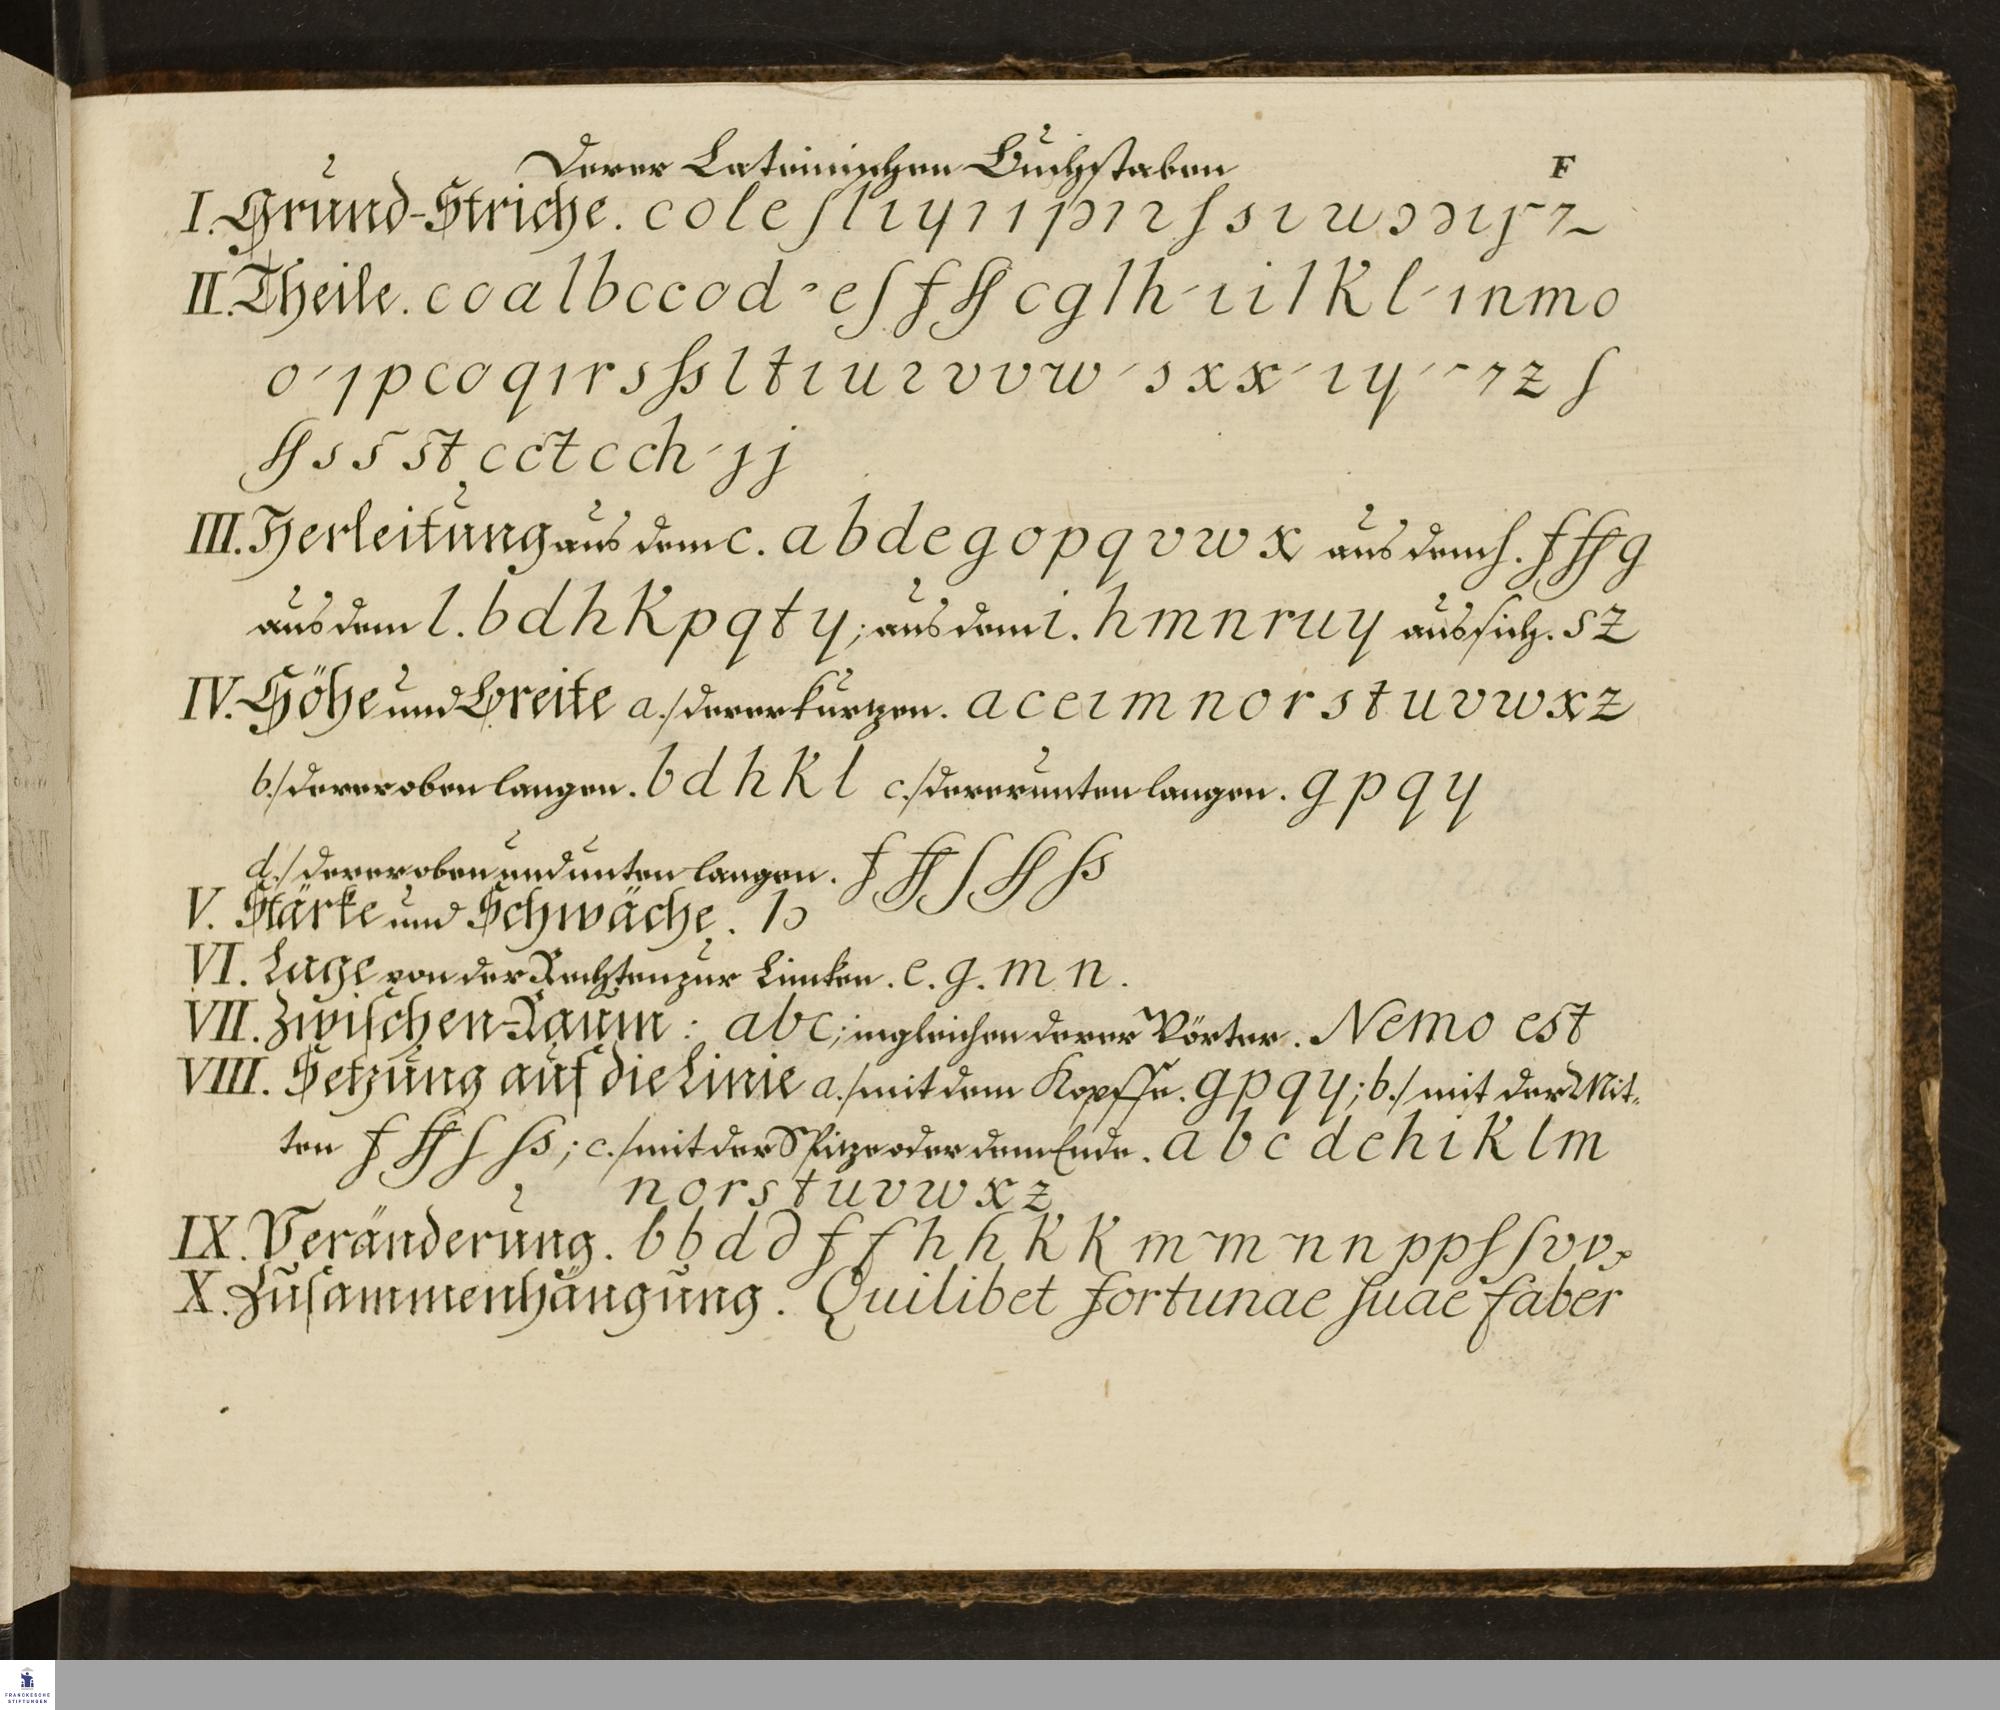 Derer Lateinischen Buchstaben F
I. Grund-Striche. c o l e ſ l ı y ı ı p ı 2 ſ s ı u
II. Theile. c o a l b c c o d e ſ f ff c g l h ı i l k l ı n m o
o p c o q ı r s ſs l t ı u 2 v v w x x ı y z ſ
ſſ s s st c ct c ch j j
III. Herleitung aus dem c. a b d e g o p q v w x aus dem ſ. f ff g
aus dem l. b d h k p q t y; aus dem i. h m n r u y aus sich. s z
IV. Höhe und Breite a./ derer kurtzen. a c e ı m n o r s t u v w x z
b./ derer oben langen. b d h k l c./ derer unten langen. g p q y
d./ derer oben und unten langen. f ff ſ ſſ ſs
V. Stärke und Schwäche. l
VI. Lage von der Rechten zur Lincken. e. g. m n.
VII. Zwischen-Raum: abc; ingleichen derer Wörter. Nemo est
VIII. Setzung auf die Linie a./ mit dem Kopffe. g p q y; b./ mit der Mit-
ten f ff ſ ſs; c./ mit der Spitze oder dem Ende. a b c d e h i k l m
n o r s t u v w x z
IX. Veränderung. b b d d f f h h k k m m n n p p ſ ſ v v
X. Zusammenhängung. Quilibet fortunae ſuae faber
FRANCKESCHE
STIFTUNGEN